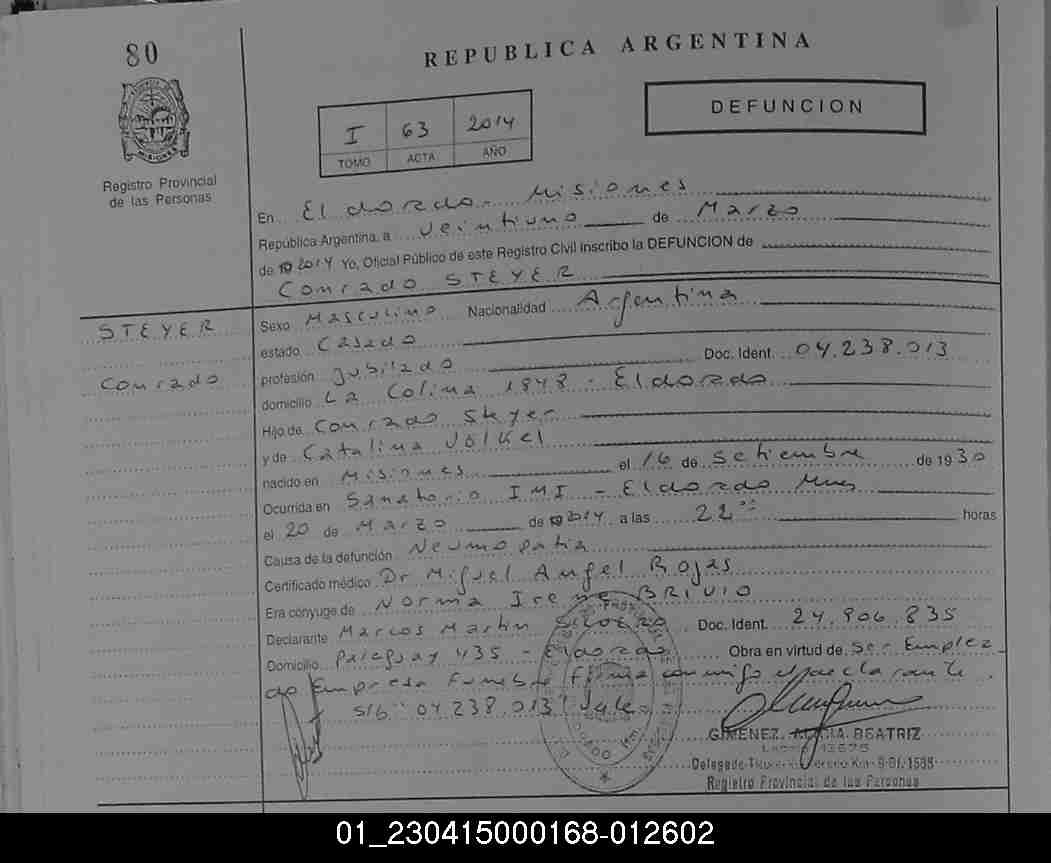 80
REPUBLICA ARGENTINA
DEFUNCION
I 63 2014
TOMO ACTA AÑO
MISIONES
Registro Provincial
de las Personas
En Eldorado - Misiones
República Argentina, a Veintiuno de Marzo
de 2014 Yo, Oficial Público de este Registro Civil inscribo la DEFUNCION de
Conrado STEYER
STEYER
Conrado
Sexo Masculino Nacionalidad Argentina
estado Casado
profesión Jubilado Doc. Ident. 04.238.013
domicilio La Colina 1848 - Eldorado
Hijo de Conrado Steyer
y de Catalina Volkel
nacido en Misiones el 16 de Setiembre de 1930
Ocurrida en Sanatorio IMI - Eldorado Mnes
el 20 de Marzo de 2014 a las 22 00 horas
Causa de la defunción Neumopatia
Certificado médico Dr Miguel Angel Rojas
Era cónyuge de Norma Irene BRIVIO
Declarante Marcos Martin Doc. Ident. 24.906.835
Domicilio Paraguay 435 - Eldorado Obra en virtud de Ser Emplea
do Empresa Funebre firma conmigo el declarante
S/b: "04.238.013" Vale
GIMENEZ, ALICIA BEATRIZ
Registro Provincial de las Personas
01_230415000168-012602